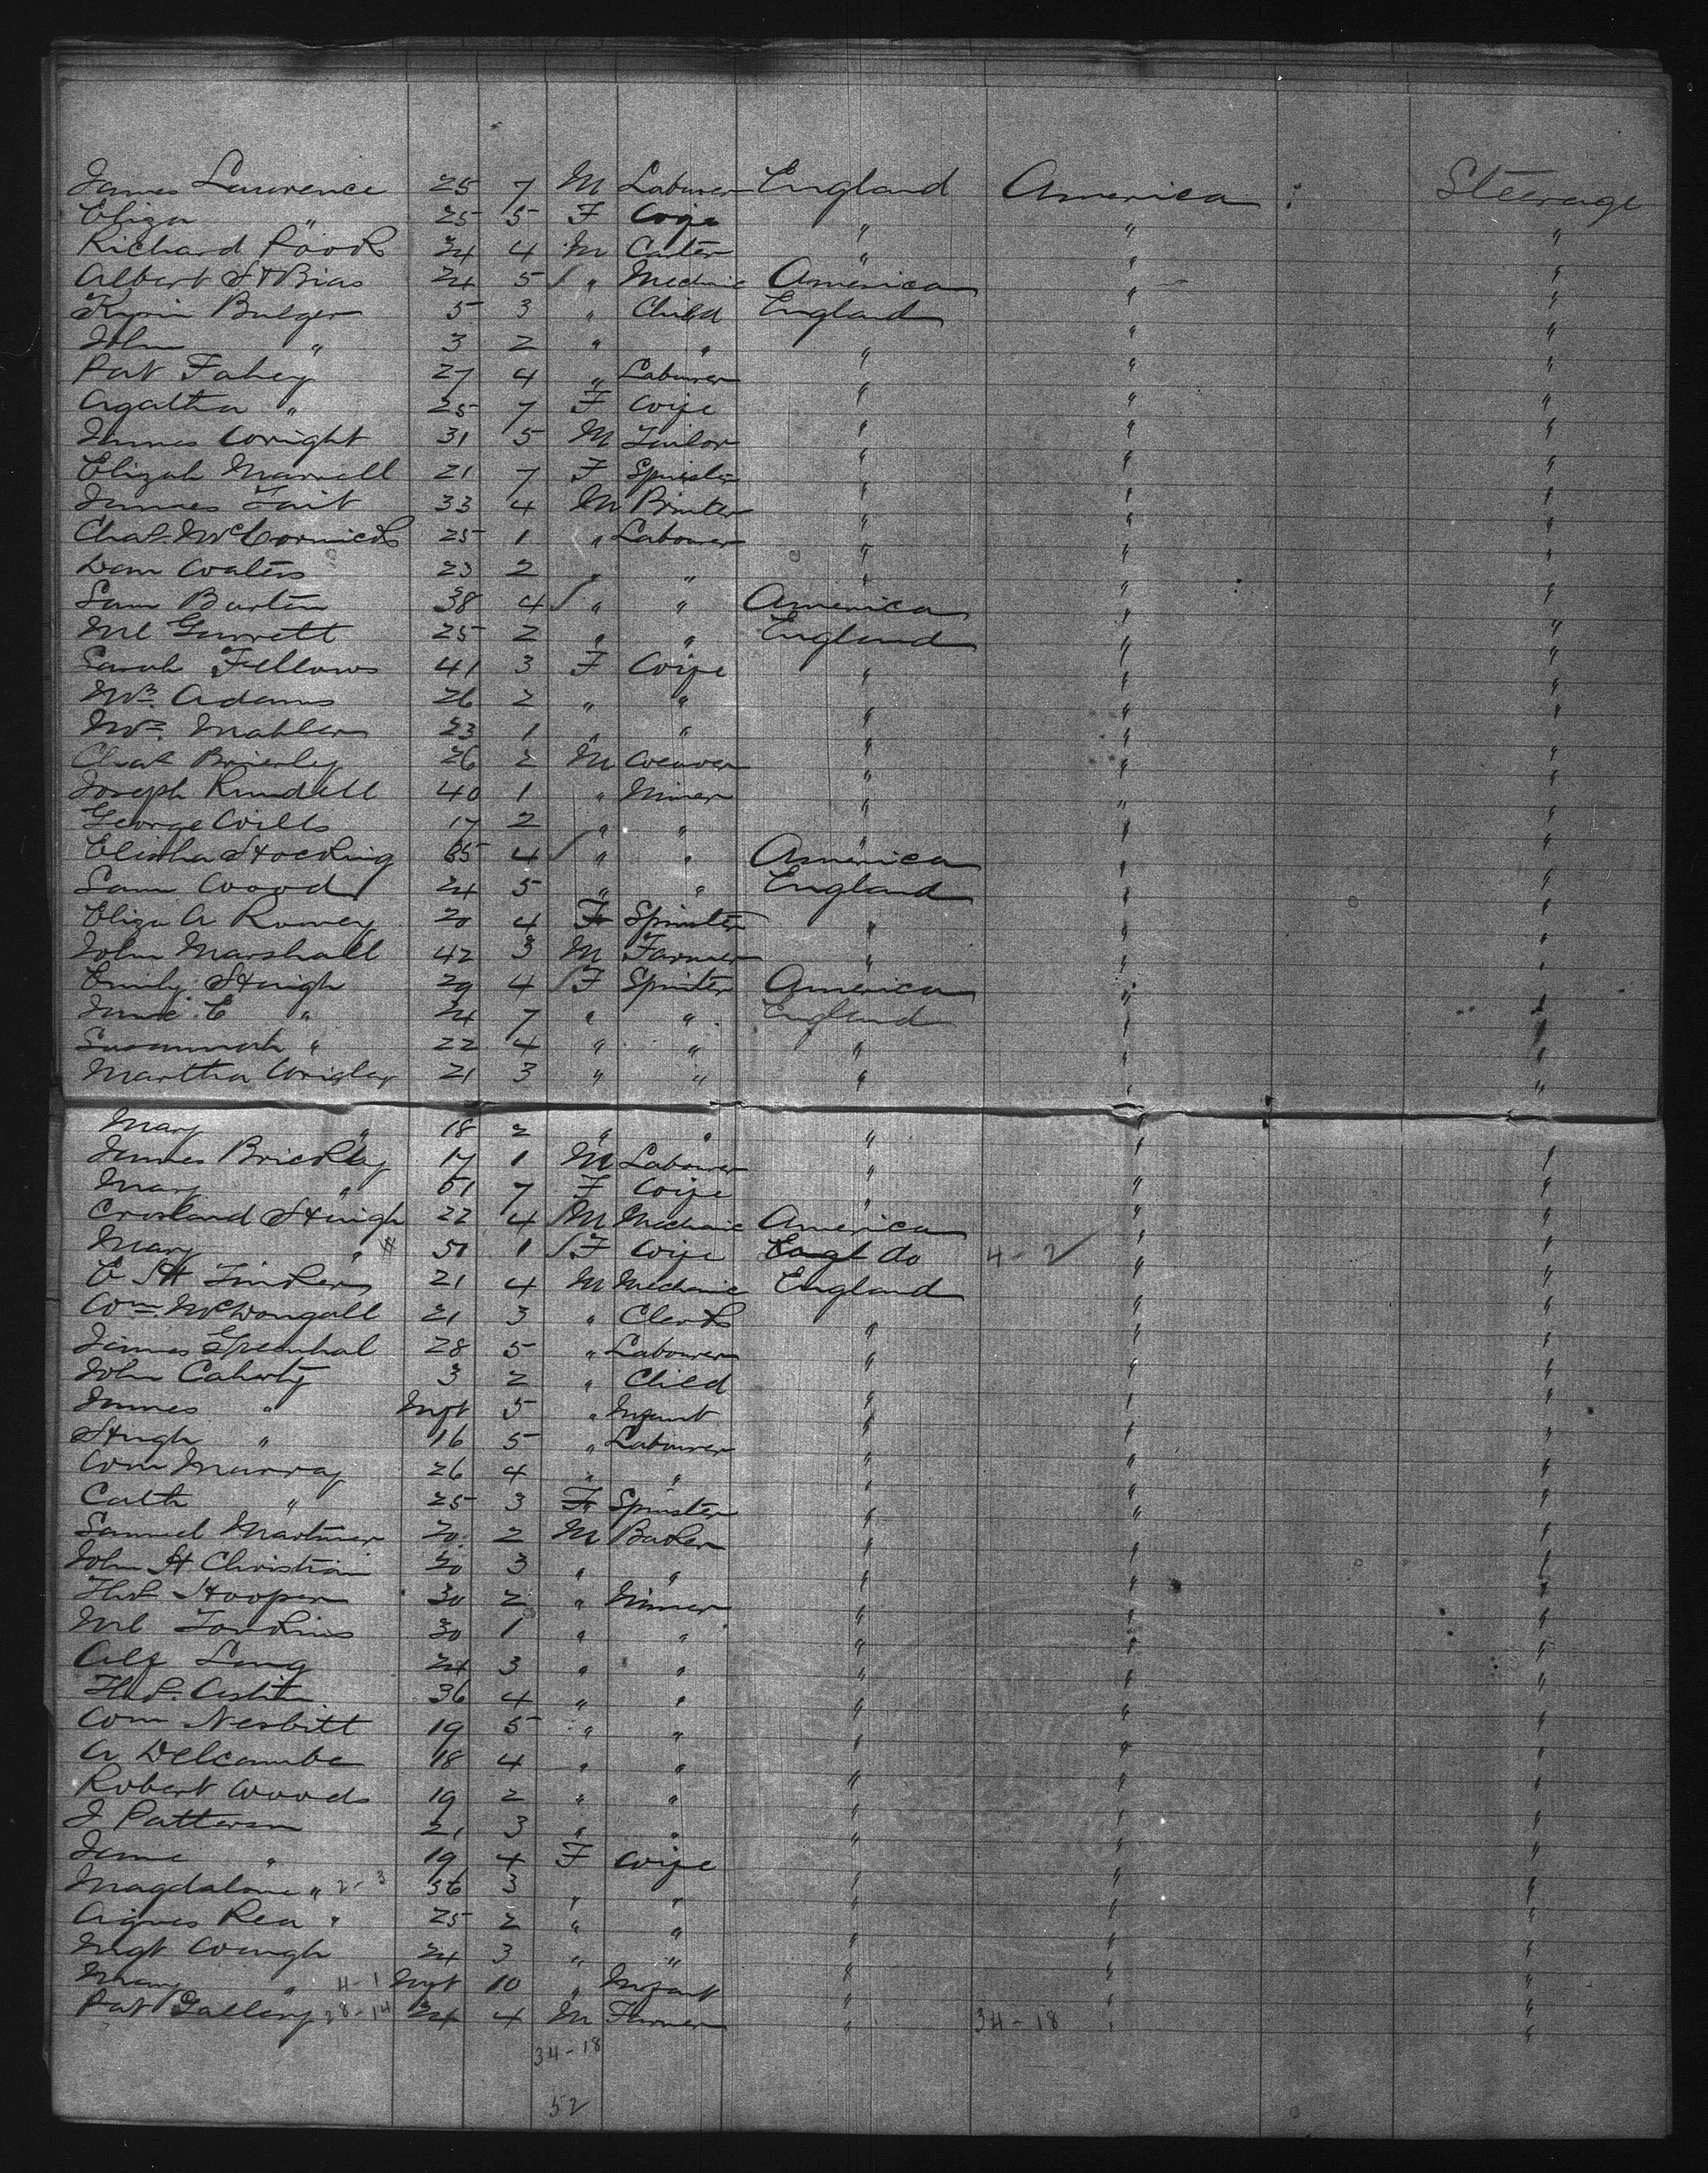 James Lawrence 25 7 M Labourer England America : Steerage
Eliza " 25 5 F Wife " " "
Richard Cook 24 4 M Carter " " "
Albert St Bias 24 5 / " Mechanic America " "
Bulger 5 3 " Child England " "
John " 3 2 " " " " "
Pat Fahey 27 4 " Labourer " " "
Agatha " 25 7 F Wife " " "
James Wright 31 5 M Tailor " " "
Elizah 21 7 F Spinster " " "
James Tait 33 4 M Printer " " "
Chas. McCormick 25 1 " Labourer " " "
Dan Waters 23 2 " " " " "
Sam Burton 38 4 / " " America " "
Ml Garrett 25 2 " " England " "
Sarah Fellows 41 3 F Wife " " "
Mrs. Adams 26 2 " " " " "
Mrs. Mahler 23 1 " " " " "
Chas Brierley 26 2 M Weaver " " "
Joseph Rundell 40 1 " Miner " " "
George Wills 17 2 " " " " "
Elisha Hocking 65 4 / " " America " "
Sam Wood 24 5 " " England " "
Eliza A Romey 20 4 F Spinster " " "
John Marshall 42 3 M Farmer " " "
Emily Hirigh 29 4 / F Spinster America " "
E " 24 7 " " England " "
Susannah " 22 4 " " " " "
Martha Wrigley 21 3 " " " " "
Mary " 18 2 " " " "
James Brickley 17 1 M Labourer " " "
Mary " 61 7 F Wife " " "
Crosland Hirigh 22 4 / M Mechanic America " "
Mary " 51 1 / F Wife Engl do 4-2 ✓ " "
E H Tinker 21 4 M Mechanic England " "
Wm. McDougall 21 3 " Clerk " " "
James Greenhal 28 5 " Labourer " " "
John Caherty 3 2 " Child " " "
James " Inft 5 " Infant " " "
Hugh " 16 5 " Labourer " " "
Wm Murray 26 4 " " " " "
Cath " 25 3 F Spinster " " "
Samuel Mortimer 20 2 M Baker " " "
John H Christian 20 3 " " " " "
Thos Hooper 30 2 " Miner " " "
Ml Tonkins 30 1 " " " " "
Alf Long 24 3 " " " " "
Thos. Astin 36 4 " " " " "
Wm Nesbitt 19 5 " " " " "
A Delcambe 18 4 " " " " "
Robert Woods 19 2 " " " " "
J Patterson 21 3 " " " " "
Jane " 19 4 F Wife " " "
Magdalane " 2-3 56 3 " " " " "
Agnes Rea " 25 2 " " " " "
Mgt Waugh 24 3 " " " " "
Mary " 4-1 Inft 10 " Infant " " "
Pat Gallery 28-14 24 4 M Farmer " 34-18 " "
34-18
52